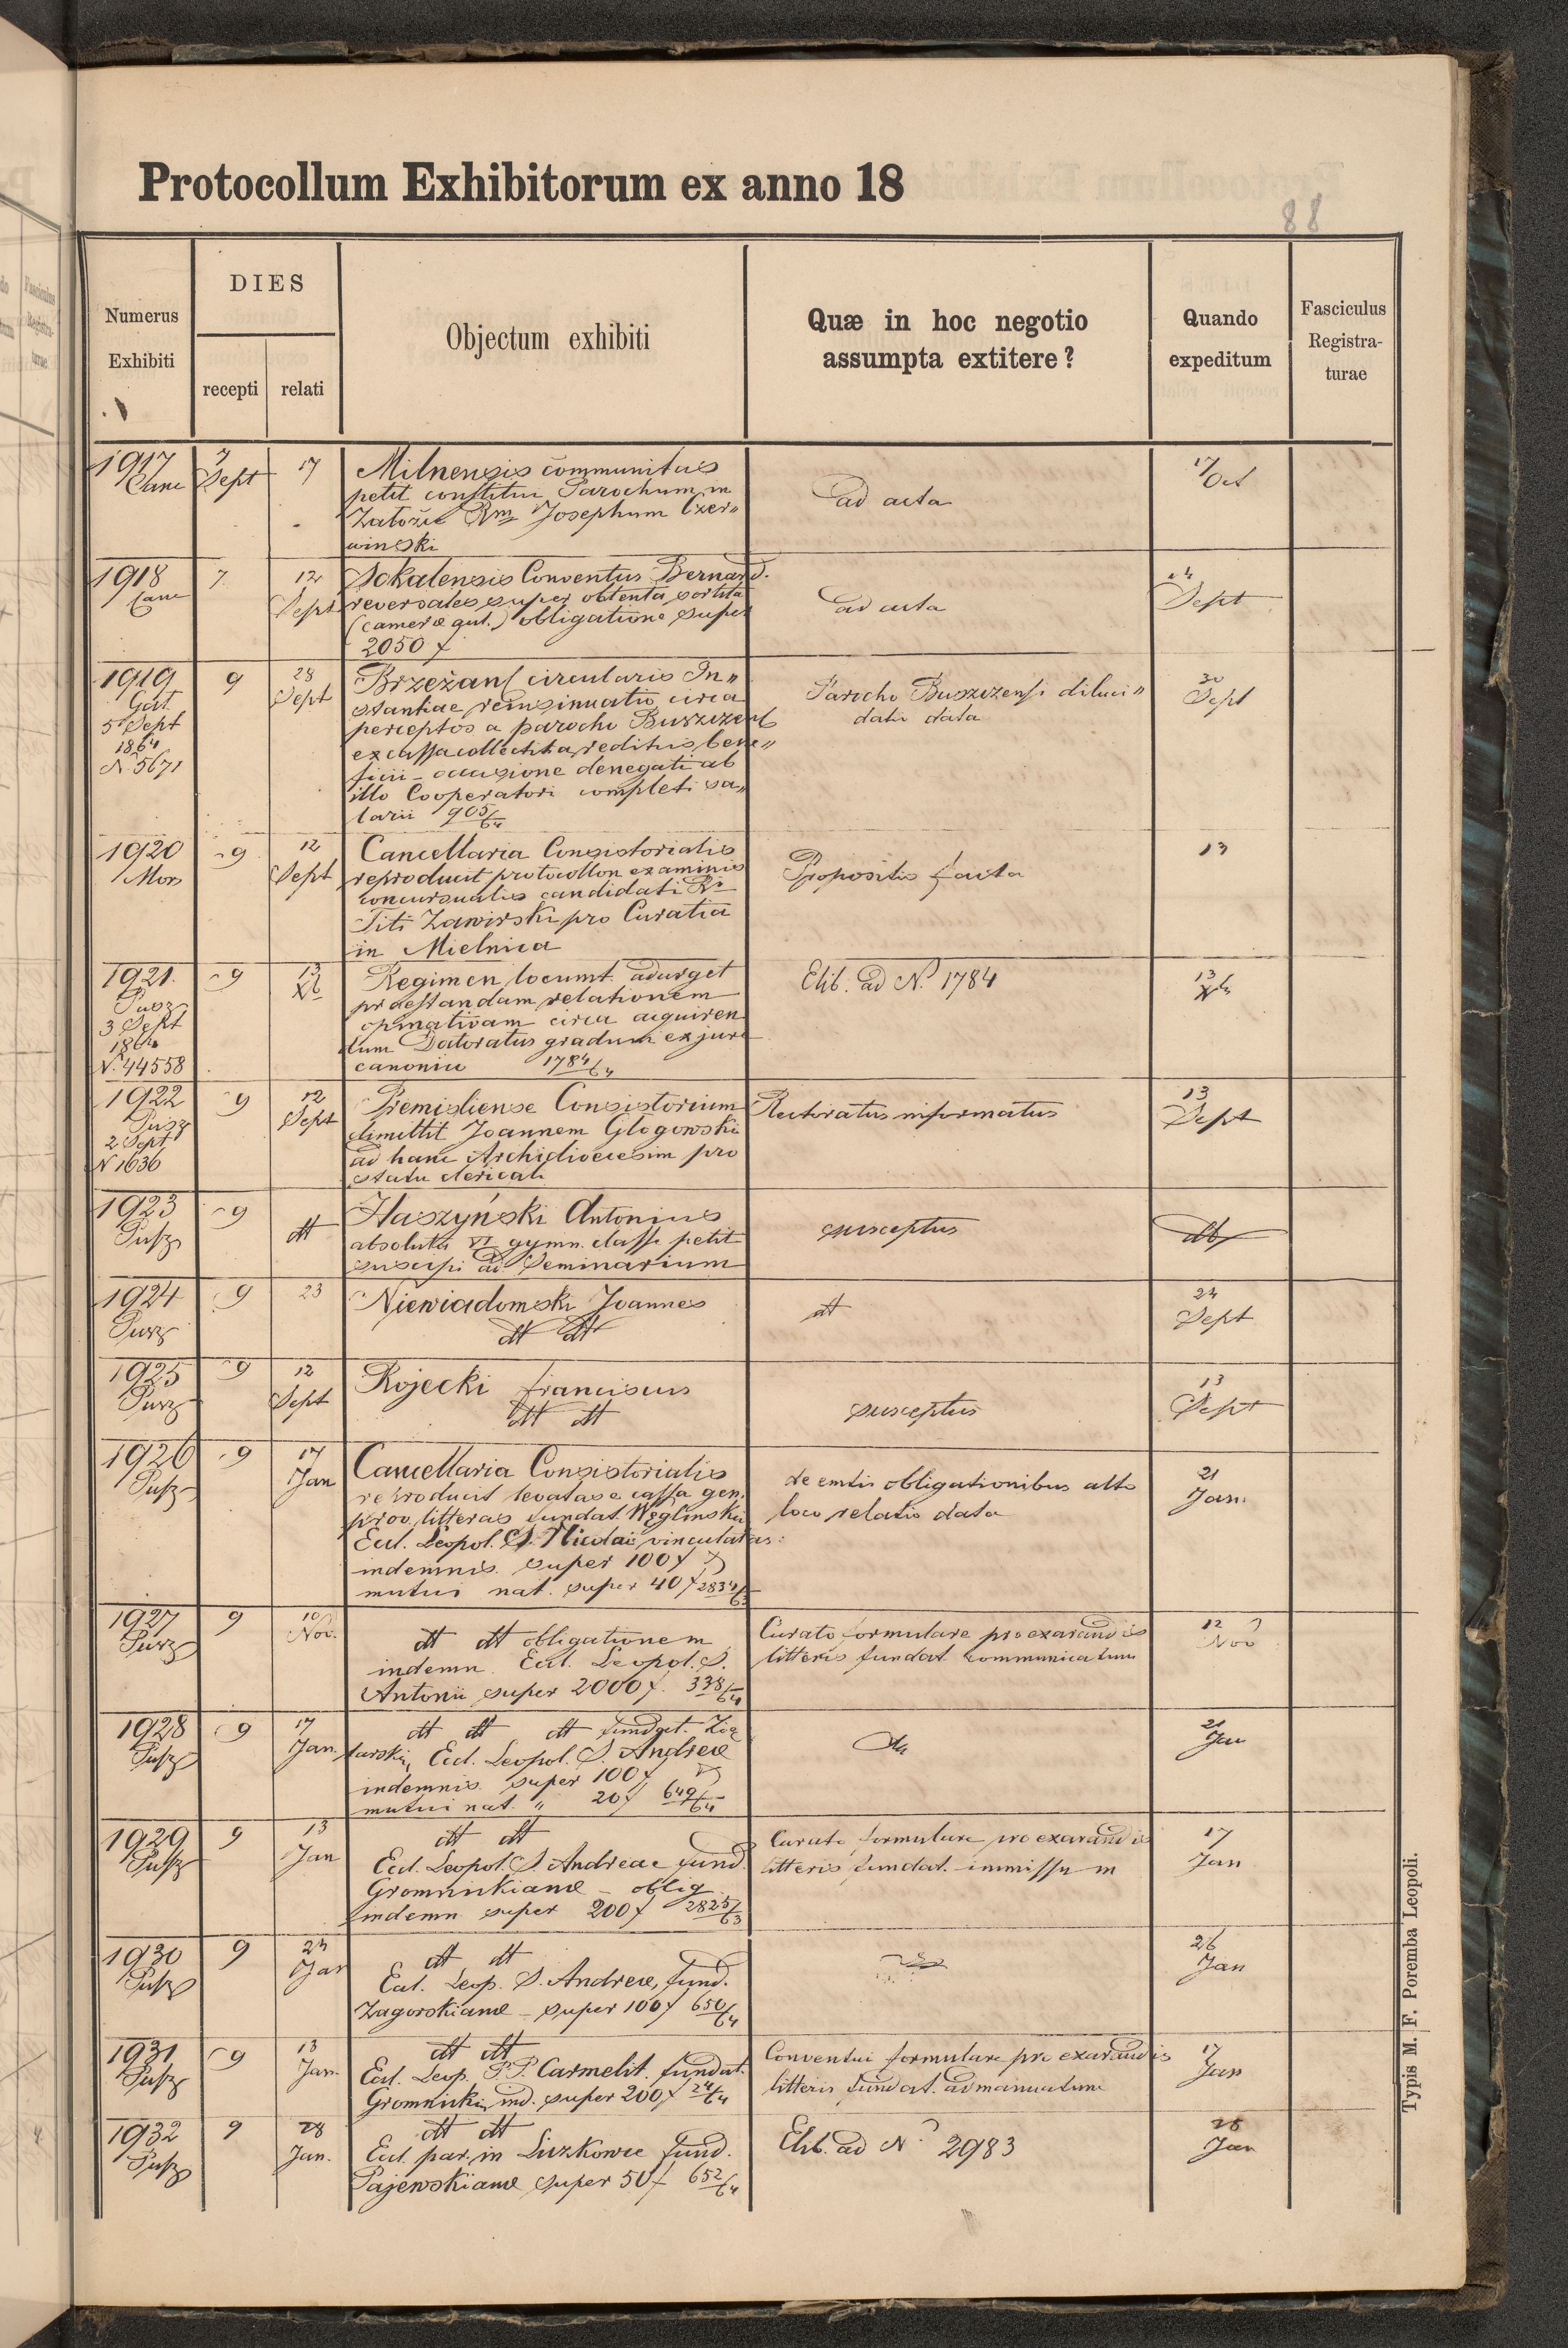 Protocollum Exhibitorum ex anno 18
88
Numerus Exhibiti
DIES
recepti
relati
Objectum exhibiti
Quæ in hoc negotio assumpta extitere?
Quando expeditum
Fasciculus Registra-turae
1917
7 Sept
17
Milnensis communitas
petit constitui Parochum in
Założce Rm Josephum Czer„
winski
ad acta
17 Oct
1918
7
12 Sept
Sokalensis Conventus Bernard.
reversales super obtenta sortita
(cameræ aul.) obligatione super
2050 f
ad acta
24 Sept
1919
5 Sept
1864
N. 5671
9
28 Sept
Brzeżans circularis In„
stantiae reinsinuatio circa
perceptos a parocho Buszczens
ex cassa collectita reditus bene„
ficii - occasione denegati ab
illo Cooperatori completi sa„
larii 905/64
Parocho Buszczensi diluci„
datio data
30 Sept
1920
Mors
9
12 Sept
Cancellaria Consistorialis
reproducit protocollon examinis
concursualis candidati Ri
Titi Zawirski pro Curatia
in Mielnica
Propositio facta
13
1921.
3 Sept
1864
N. 44558
9
13 Xb
Regimen locumt. adurget
praestandam relationem
opinativam circa acquiren
dum Doctoratus gradum ex jure
canonico 1784/64
Exib. ad N. 1784
13 Xb
1922
Pusz
2 Sept
N 1636
9
12 Sept
Premisliense Consistorium
dimittit Joannem Glogowski
ad hanc Archidioecesim pro
statu clericali
Rectoratus informatus
13 Sept
1923
Pusz
9
dtt
Haszyński Antonius
absoluta VI gymn. classe petit
suscipi ad Seminarium
susceptus
dtt
1924
Pusz
9
23
Niewiadomski Joannes
dtt dtt
dtt
24 Sept
1925
Pusz
9
12 Sept
Rojecki Franciscus
dtt dtt
susceptus
13 Sept
1926
Pusz
9
17 Jan
Cancellaria Consistorialis
reproducit levatas e cassa gen.
prov. litteras fundat. Węglinski
Eccl. Leopol. S. Nicolai vinculatas:
indemnis. super 100 f
mutui nat. super 40 f 2834/63
de emtis obligationibus alto
loco relatio data
21 Jan.
1927
Pusz
9
10 Nov.
dtt dtt obligationem
indemn. Eccl. Leopol. S.
Antonii super 2000 f. 338/64
Curato formulare pro exarandis
litteris fundat communicatum
12 Nov
1928
Pusz
9
17 Jan.
dtt dtt dtt fundat.
Eccl. Leopol. S. Andreæ
indemnis. super 100 f
mutui nat. „ 20 f 649/64
21 Jan
1929
Pusz
9
13 Jan
dtt dtt
Eccl. Leopol. S. Andreae fund.
Gromnickianæ - oblig
indemn super 200 f 2825/63
Curato formulare pro exarandis
litteris fundat. immissum
17 Jan
1930
Pusz
9
24 Jan
dtt dtt
Eccl. Leop. S. Andreæ, fund.
Zagorskianæ - super 100 f 650/64
26 Jan
1931
Pusz
9
13 Jan.
dtt dtt
Eccl. Leop. P.P. Carmelit. fundat.
Gromnicki, ind. super 200 f 24/64
Conventui formulare pro exarandis
litteris fundat. admanuatum
17 Jan
1932
Pusz
9
28 Jan.
dtt dtt
Eccl. par. in Liczkowce fund.
Pajewskianæ super 50 f 652/64
Exib. ad N. 2983
28 Jan
Typis M. F. Poremba Leopoli.